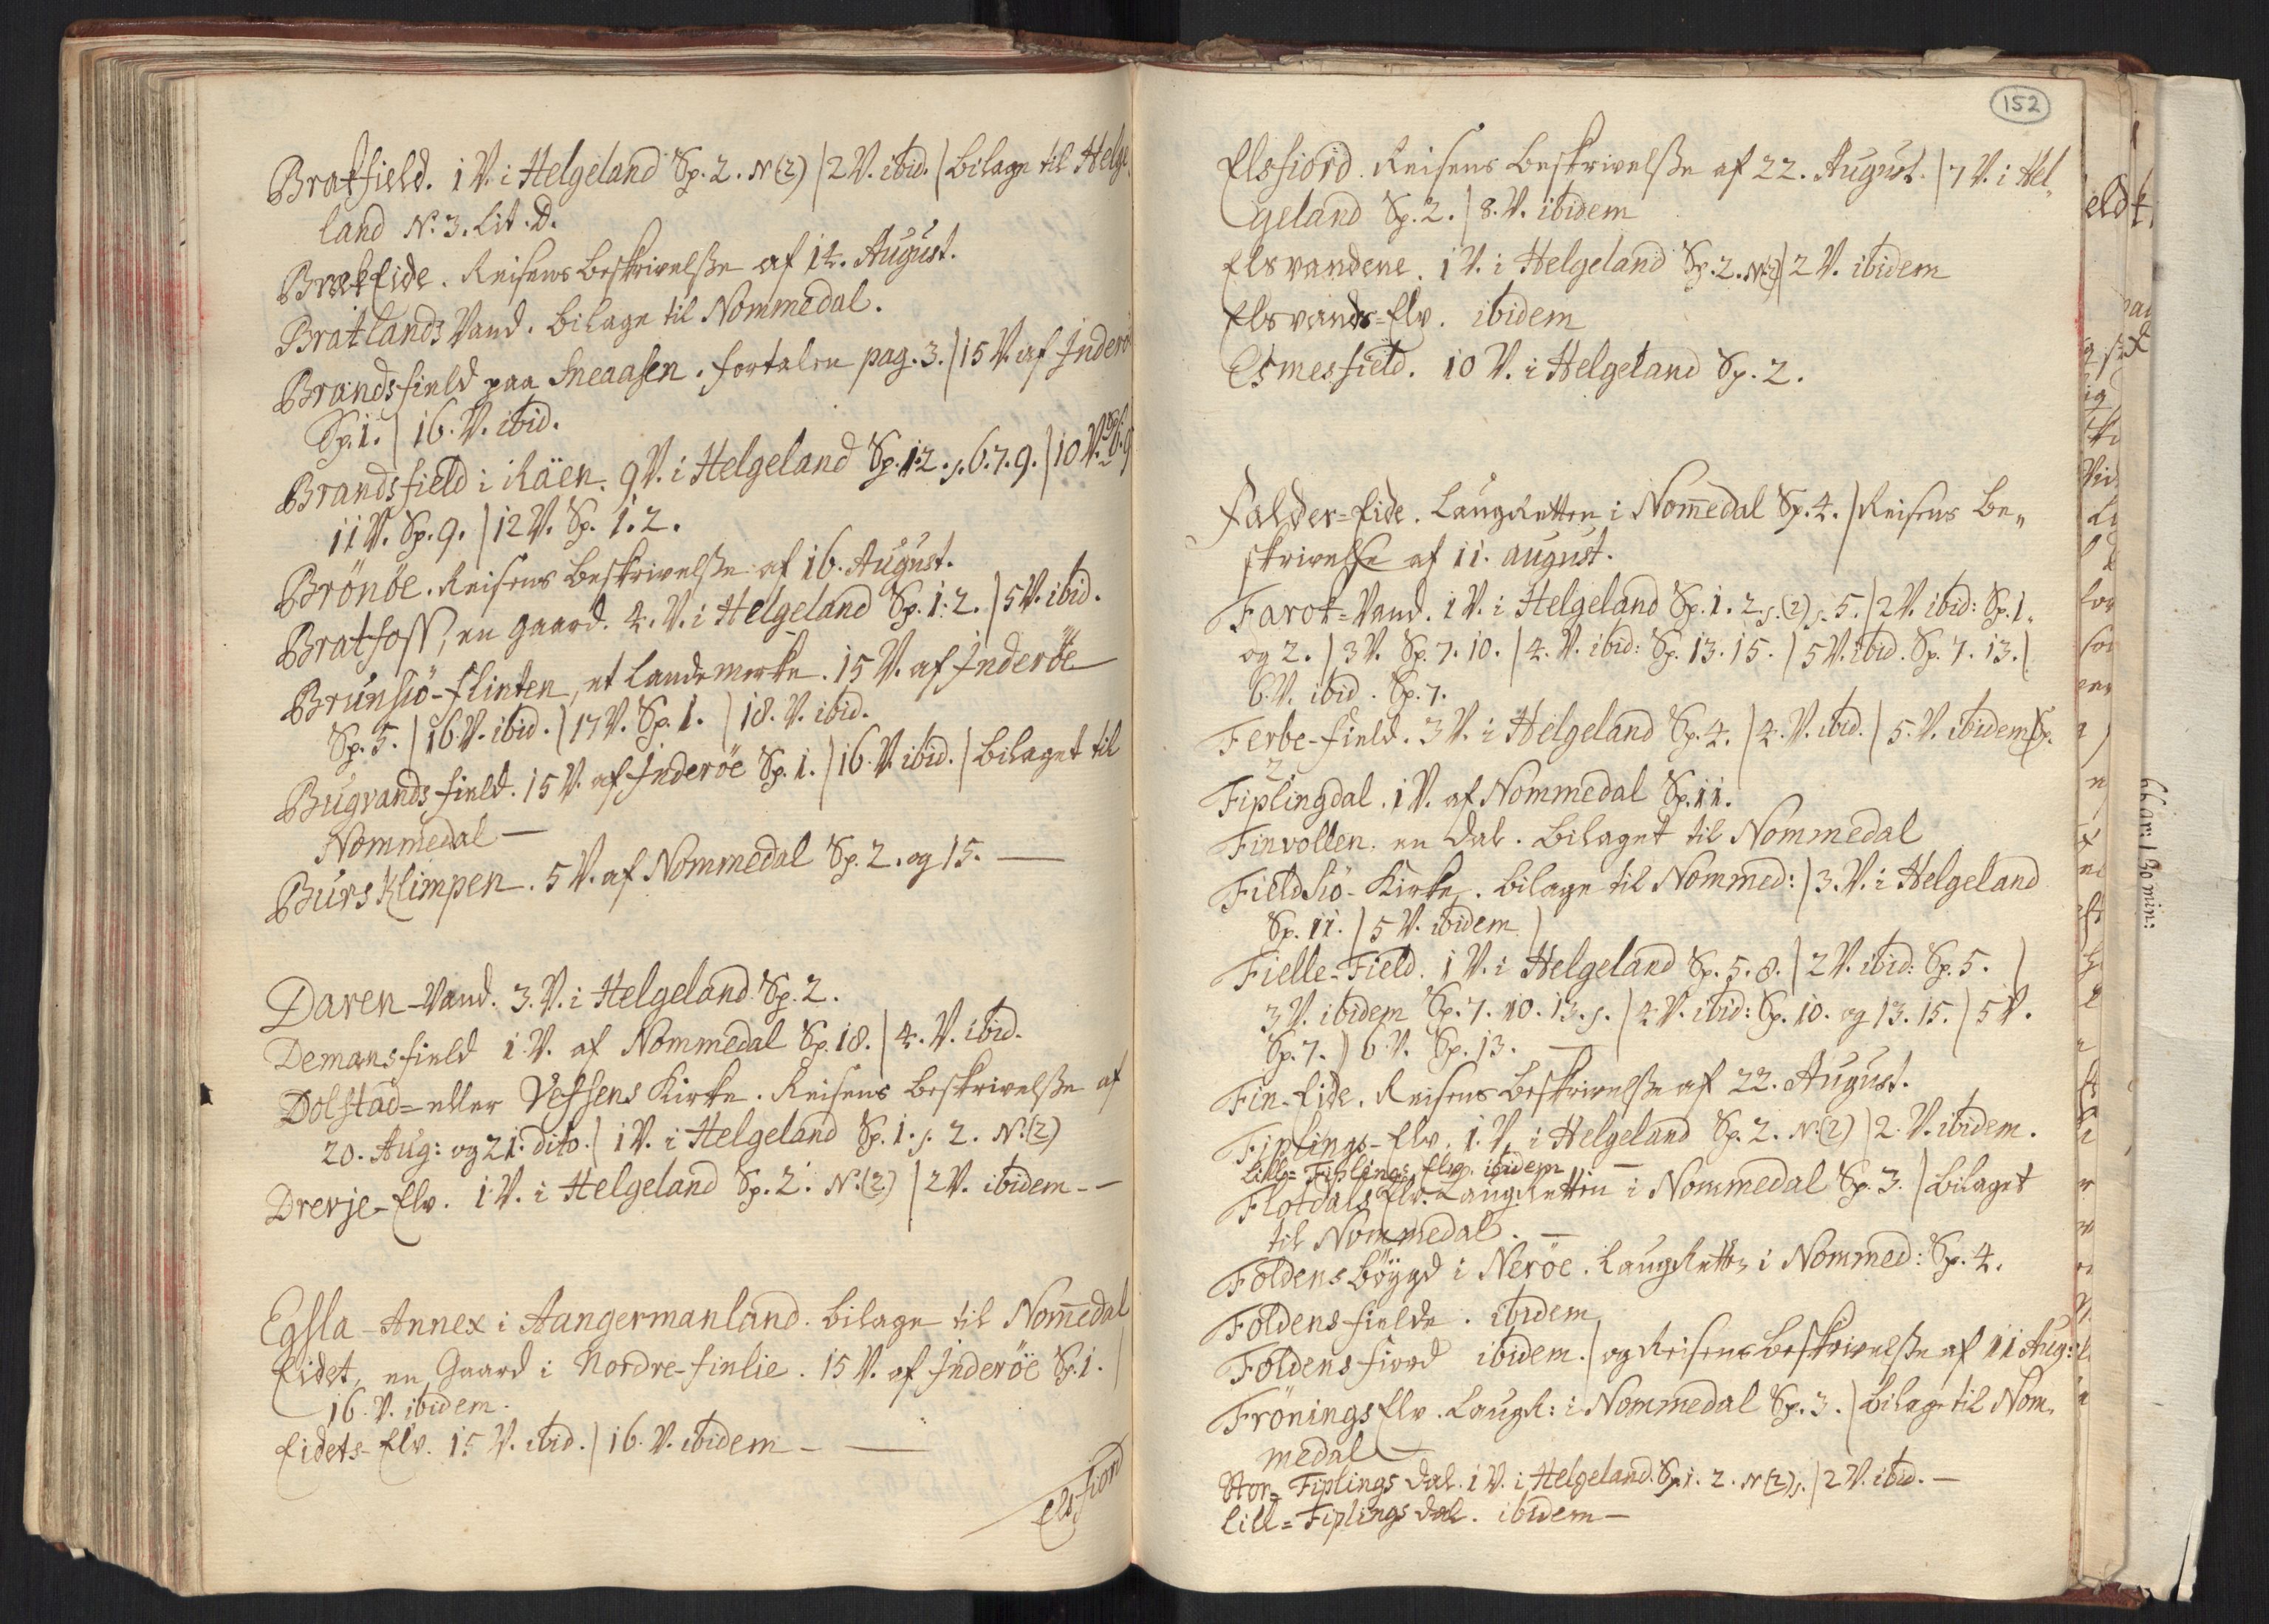 Bratfield. 1 V. i Helgeland Sp. 2. N(2) | 2 V. ibid. | bilage til Helge
land N. 3. Lit. D.
Brækfide. Reisens Beskrivelsße af 14. August.
Bratlands Vand. bilage til Nommedal.
Brandsfield paa Sneaasen. fortalen pag. 3. | 15 V. af Inderö
Sp. 1. | 16. V. ibid.
Brandsfield i Räen. 9 V. i Helgeland Sp. 1. 2. s. 6. 7. 9. | 10 V.
11 V. Sp. 9. | 12 V. Sp. 1. 2.
Brönöe. Reisens Beskrivelsße af 16. August.
Bratfoss, en gaard. 4. V. i Helgeland Sp. 1. 2. | 5 V. ibid.
Brunsiö-flinten, et Landemerke. 15 V. af Inderöe
Sp. 5. | 16 V. ibid. | 17 V. Sp. 1. | 18. V. ibid.
Bugvandsfield. 15 V. af Inderöe Sp. 1. | 16. V. ibid. | bilaget til
Nommedal —
Burs Klimpen. 5 V. af Nommedal Sp. 2. og 15. —
Daren-Vand. 3. V. i Helgeland Sp. 2.
Demansfield 1 V. af Nommedal Sp. 18. | 4. V. ibid.
Dolstad= eller Vefsens Kirke. Reisens Beskrivelsße af
20. Aug: og 21. dito. | 1 V. i Helgeland Sp. 1. s. 2. N.(2)
Drevje-Elv. 1 V. i Helgeland Sp. 2. N.(2) | 2 V. ibidem - -
Egsla-Annex i Aangermanland. bilage til Nom̄edal
Eidet, en Gaard i Nordre-finlie. 15 V. af Inderöe Sp. 1. |
16. V. ibidem.
Eidets-Elv. 15 V. ibid. | 16. V. ibidem - —
Elsfiord
152
Elsfiord. Reisens Beskrivelsße af 22. August. | 7 V. i Hel„
geland Sp. 2. | 8. V. ibidem
Elsvandene. 1 V. i Helgeland Sp. 2. N(2) | 2 V. ibidem
Elsvands=Elv. ibidem
Esmesfield. 10 V. i Helgeland Sp. 2.
Falder=Eide. Laugretten i Nom̄edal Sp. 4. | Reisens Be„
skrivelse af 11. august.
Farok=Vand. 1 V. i Helgeland Sp. 1. 2. s. (2) s. 5. | 2 V. ibid: Sp. 1.
og 2. | 3 V. Sp. 7. 10. | 4. V. ibid: Sp. 13. 15. | 5 V. ibid. Sp. 7. 13. |
6. V. ibid. Sp. 7.
Ferbe-field. 3 V. i Helgeland Sp. 4. | 4. V. ibid. | 5. V. ibidem Sp.
2
Fiplingdal. 1 V. af Nommedal Sp. 11.
Finvollen. en dal. bilaget til Nommedal
Fieldsiö-Kirke. bilage til Nommed: | 3. V. i Helgeland
Sp. 11. | 5 V. ibidem |
Fielle=Field. 1 V. i Helgeland Sp. 5. 8. | 2 V. ibid: Sp. 5. |
3 V. ibidem Sp. 7. 10. 13. s. | 4 V. ibid: Sp. 10. og 13. 15. | 5 V.
Sp. 7. | 6 V. Sp. 13. —
Fin-Eide. Reisens Beskrivelsße af 22. August.
Fiplings-Elv. 1. V. i Helgeland Sp. 2. N.(2) | 2. V. ibidem.
Lille=Fiplings Elv. ibidem —
Flotdals Elv. Laugretten i Nommedal Sp. 3. | bilaget
til Nommedal. —
Foldens böygd i Neröe. Laugretten i Nommed: Sp. 4.
Foldens-fielde. ibidem
Foldensfiord ibidem. | og Reisens Beskrivelsße af 11 Aug:
Frönings Elv. Laugr: i Nommedal Sp. 3. | bilage til Nom„
medal —
Stor= Fiplings dal. 1 V. i Helgeland. Sp. 1. 2. N(2) s. | 2 V. ibid. —
Lill= Fiplings dal. ibidem —